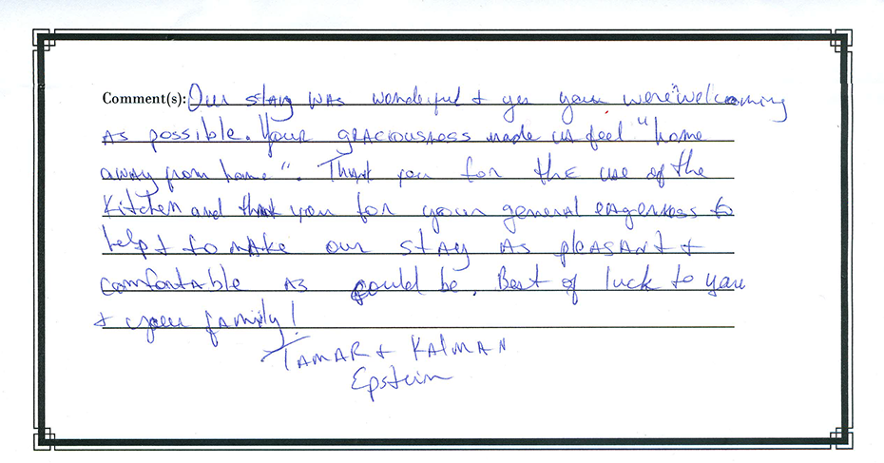 Comment(s): Our stay was wonderful + yes you were "welcoming
as possible. Your graciousness made us feel "home
away from home". Thank you for the use of the
Kitchen and thank you for your general eagerness to
help + to make our stay as pleasant +
comfortable as could be. Best of luck to you
+ your family!
Tamar + Kalman
Epstein